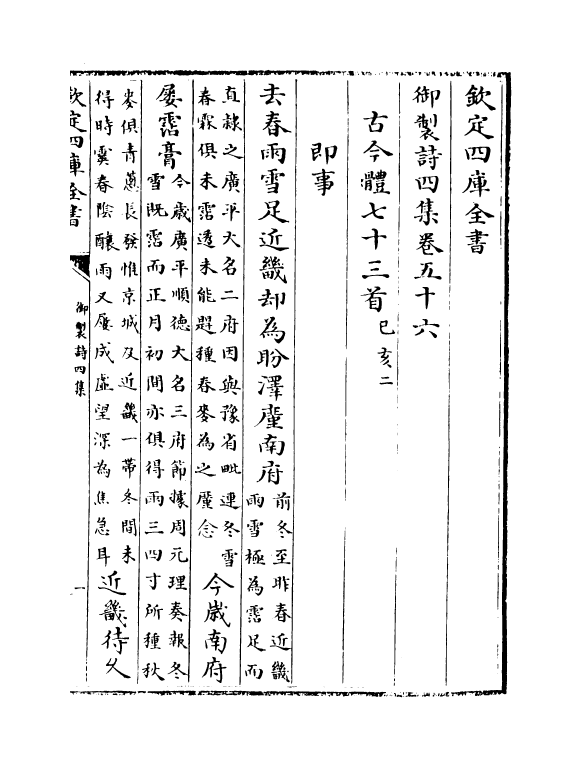 欽定四庫全書
御製詩四集卷五十六
古今體七十三首己亥二
即事
去春雨雪足近畿却為盼澤廑南府前冬至昨春近畿
雨雪極為霑足而
直隸之廣平大名二府因與豫省毗連冬雪
春霖俱未霑透未能趕種春麥為之廑念今歲南府
屢霑膏今歲廣平順德大名三府節據周元理奏報冬
雪既霑而正月初間亦俱得雨三四寸所種秋
麥俱青蔥長發惟京城及近畿一帶冬間未
得時霙春陰釀雨又屢成虛望深為焦急耳近畿待久
欽定四庫全書
御製詩四集
一